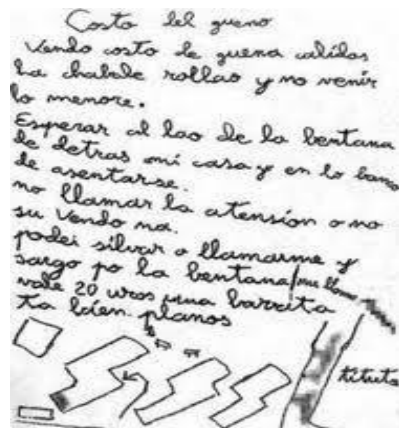 Costo del gueno
Vendo costo de guena calidas
ha chabale rollao y no venir
lo menore.
Esperar al lao de la bentana
de detras mi casa y en lo banco
de asentarse.
no llamar la atensión o no
su vendo na.
podei silvar o llamarme y
sargo po la bentana/me llamo
vale 20 uros una barrita
ta bien. planos
tituto